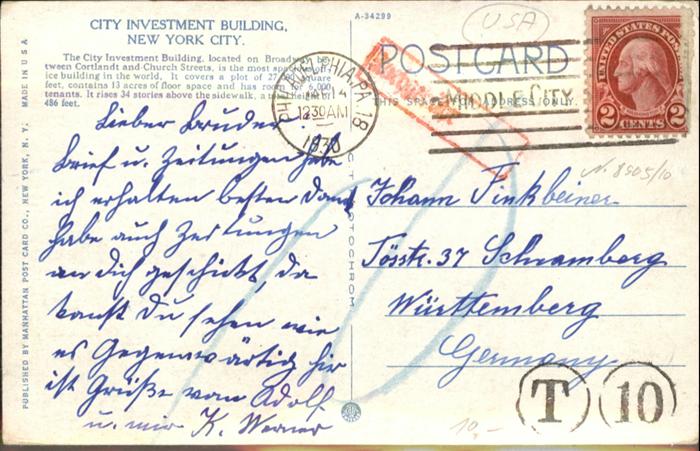 CITY INVESTMENT BUILDING,
NEW YORK CITY.
The City Investment Building, located on Broadway be-
tween Cortlandt and Church Streets, is the most spacious off-
ice building in the world. It covers a plot of 27,000 square
feet, contains 13 acres of floor space and has room for 6,000
tenants. It rises 34 stories above the sidewalk, a total height of
486 feet.
MADE IN U S A
PUBLISHED BY MANHATTAN POST CARD CO., NEW YORK, N. Y.
A-34299
USA
POSTCARD
THIS SPACE FOR ADDRESS ONLY.
PHILADELPHIA, PA. 18
14
12 30 AM
1930
MIDDLE CITY
UNITED STATES POSTAGE
WASHINGTON
2 CENTS 2
Lieber Bruder
Brief u. Zeitungen habe
ich erhalten besten Dank
habe auch Zeitungen
an dich geschickt, da
kanst Du sehen wie
es Gegenwärtig hir
ist Grüße von Adolf
u. mir K. Werner
N. 8505/10
Johann Finkbeiner
Tösstr. 37 Schramberg
Württemberg
Germany
T
10
10.-